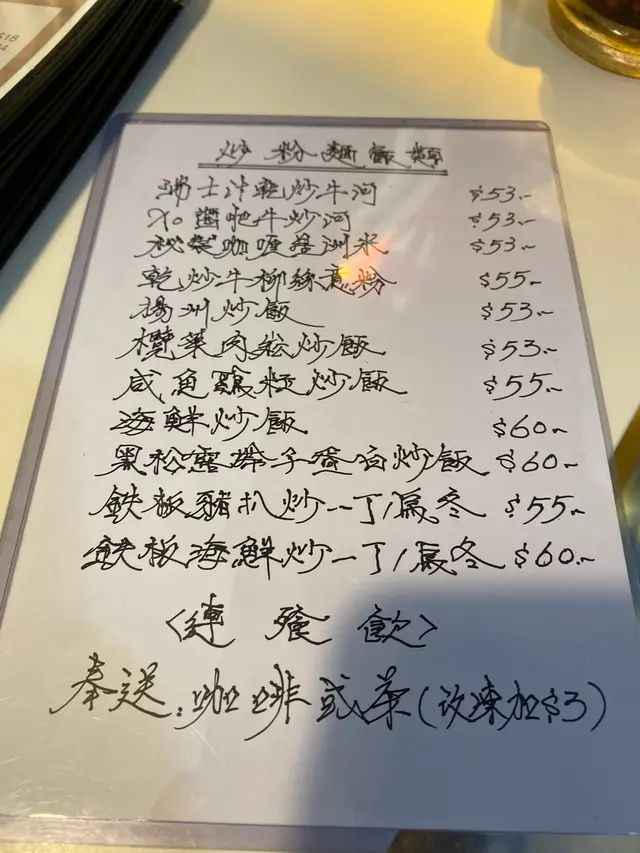 炒粉麵飯類
瑞士汁乾炒牛河 $53.-
XO醬爬牛炒河 $53.-
秘製咖喱星洲米 $53.-
乾炒牛柳絲意粉 $55-
楊州炒飯 $53.-
欖菜肉崧炒飯 $53.-
咸魚鷄粒炒飯 $55~
海鮮炒飯 $60~
黑松露帶子蛋白炒飯 $60~
鉄板豬扒炒一丁/烏冬 $55~
鉄板海鮮炒一丁/烏冬 $60~
<連餐飲>
奉送:咖啡或茶(改凍加$3)